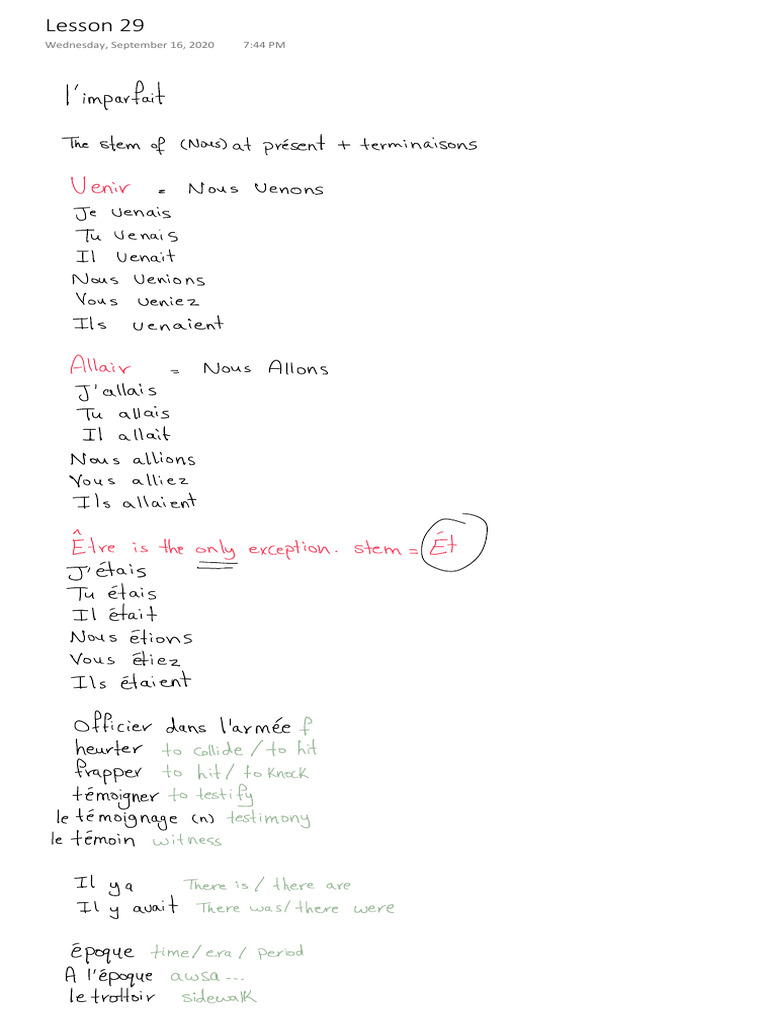 Lesson 29
Wednesday, September 16, 2020 7:44 PM
l'imparfait
The stem of (Nous) at présent + terminaisons
Venir = Nous Venons
Je venais
Tu venais
Il venait
Nous venions
Vous veniez
Ils venaient
Allair = Nous Allons
J'allais
Tu allais
Il allait
Nous allions
Vous alliez
Ils allaient
Être is the only exception. stem = Ét
J'étais
Tu étais
Il était
Nous étions
Vous étiez
Ils étaient
Officier dans l'armée f
heurter to collide / to hit
frapper to hit / to knock
témoigner to testify
le témoignage (n) testimony
le témoin witness
Il y a There is / there are
Il y avait There was / there were
époque time / era / period
A l'époque awsa...
le trottoir sidewalk